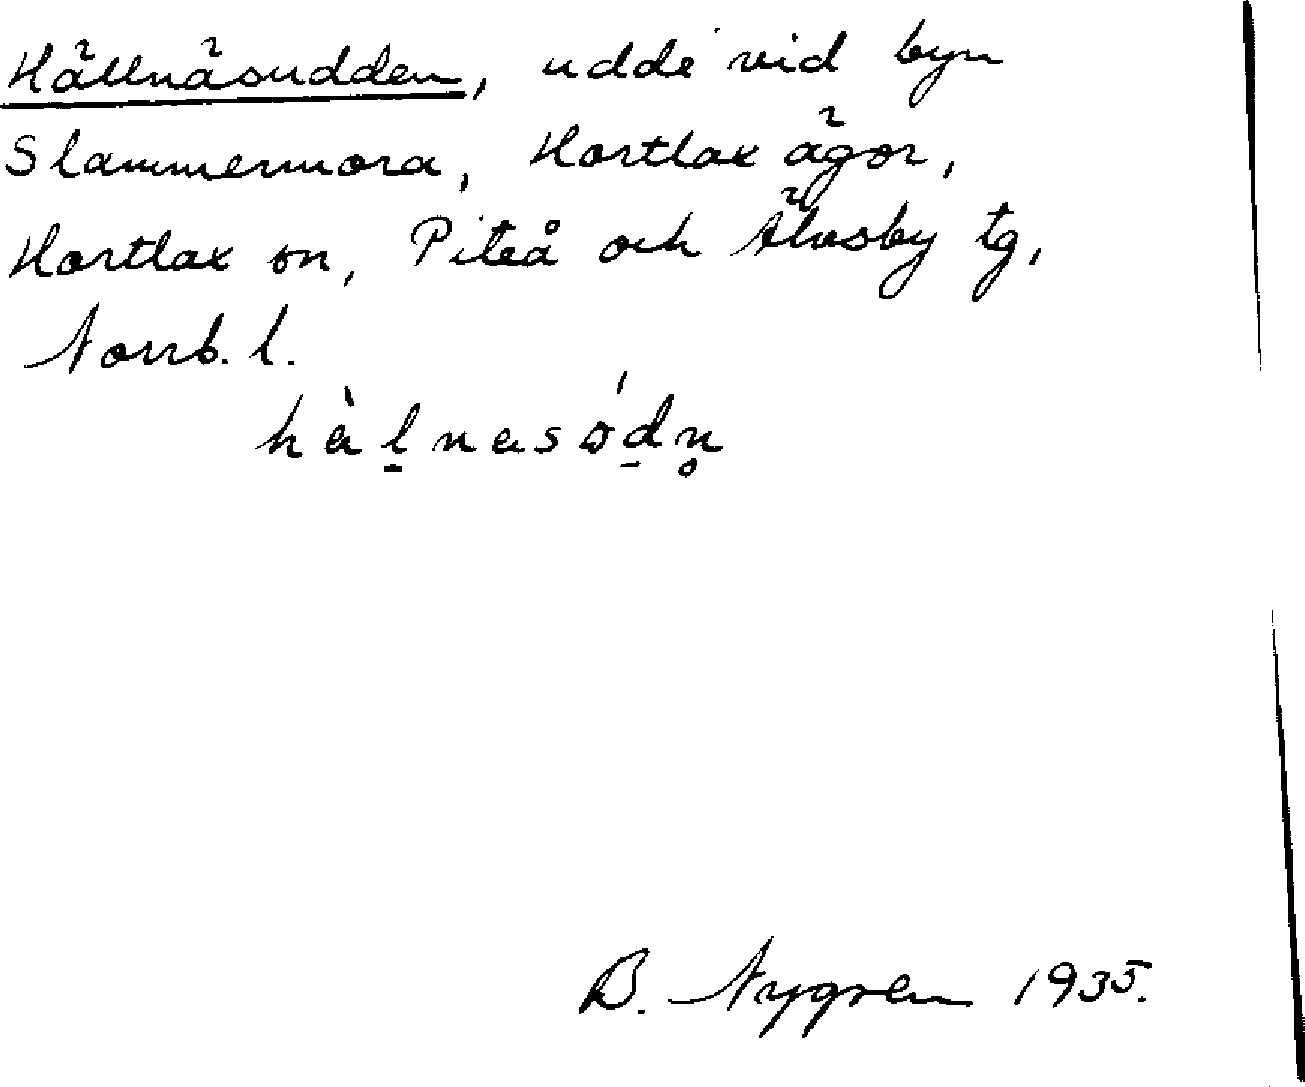 Hällnäsudden, udde vid byn
Slammermora, Hortlax ägor,
Hortlax sn, Piteå och Älvsby tg,
Norrb. l.
hàḻnasóḏn̥
B. Nygren 1935.